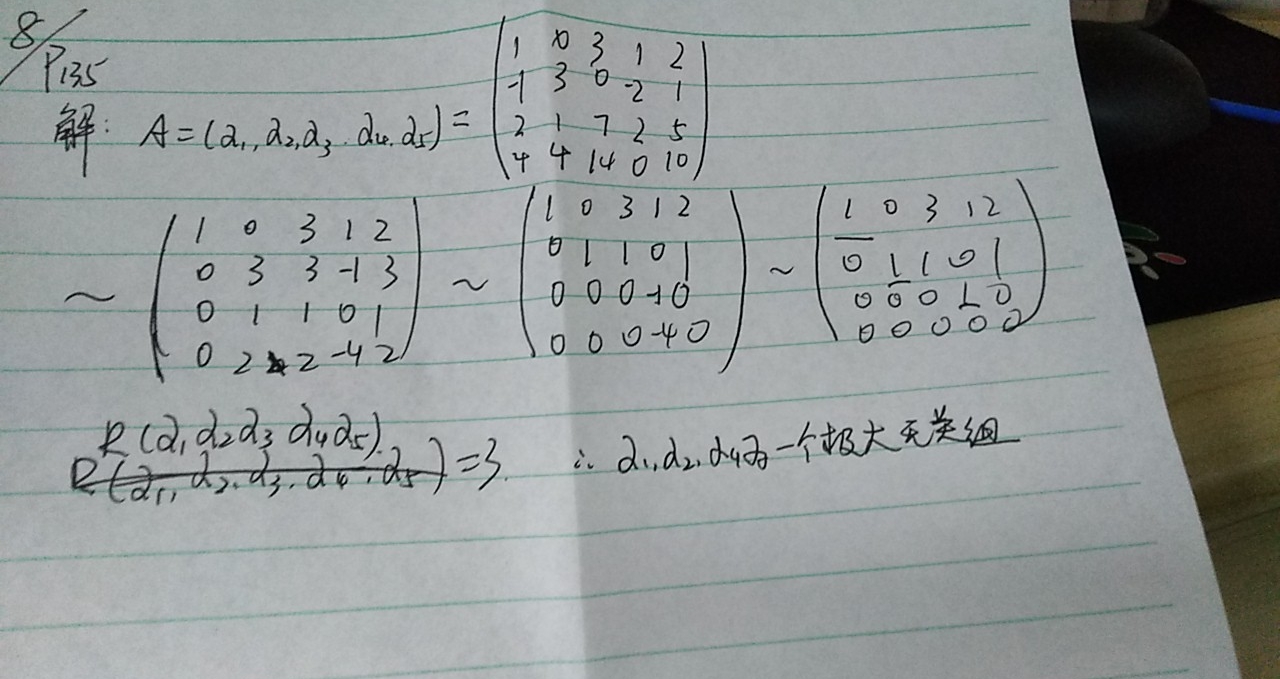 8/P135
解: A=(α₁,α₂,α₃.α₄.α₅)=
1 0 3 1 2
-1 3 0 -2 1
2 1 7 2 5
4 4 14 0 10
~
1 0 3 1 2
0 3 3 -1 3
0 1 1 0 1
0 2 2 -4 2
~
1 0 3 1 2
0 1 1 0 1
0 0 0 -1 0
0 0 0 -4 0
~
1 0 3 1 2
0 1 1 0 1
0 0 0 1 0
0 0 0 0 0
R(α₁α₂α₃α₄α₅).
R(α₁,α₂.α₃.α₄.α₅)=3. ∴ α₁,α₂,α₄为一个极大无关组